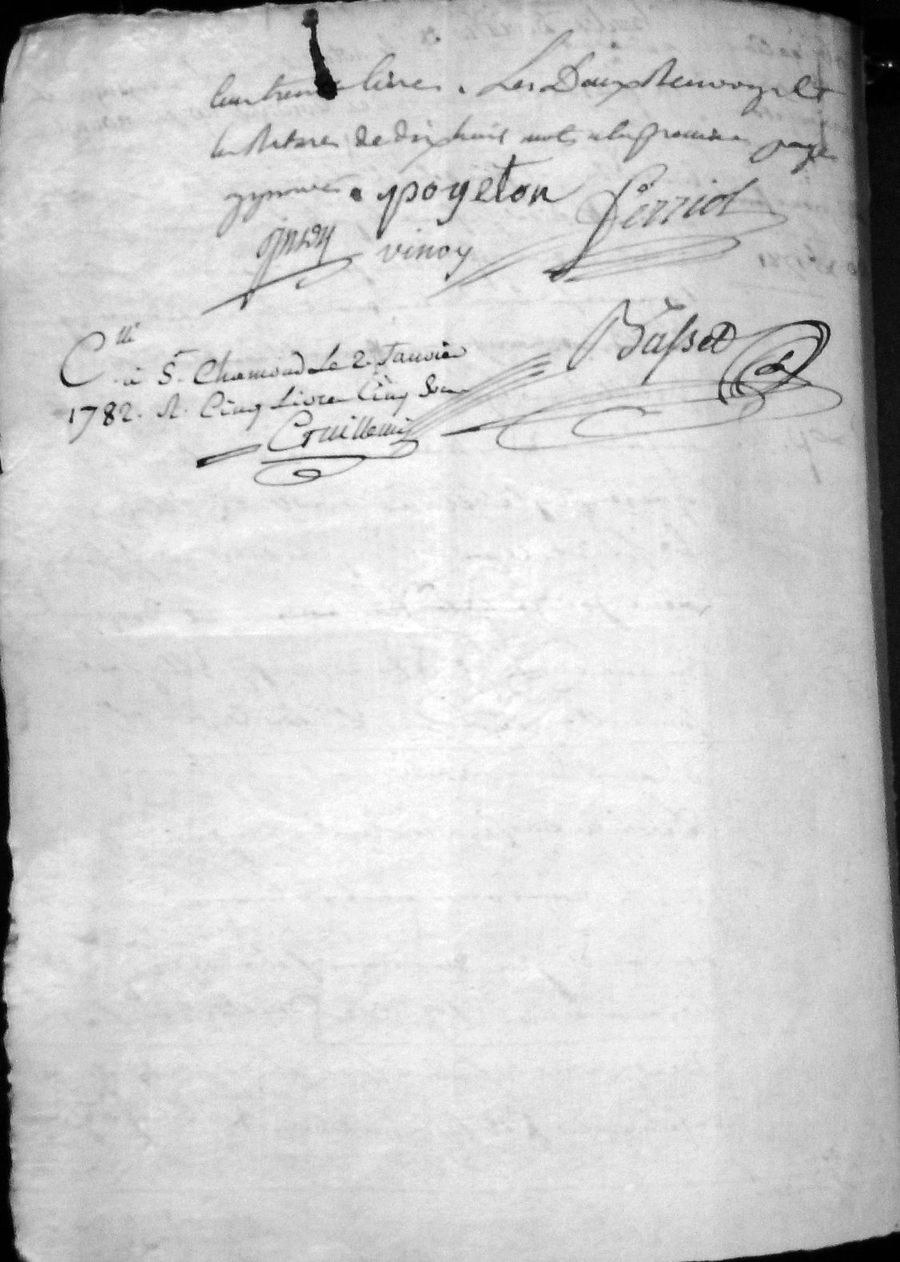 Les Deux Renvoys et
la Rature de dix huit mots a la premiere page
approuvés . poyeton Ferriol
vinoy
Basset
C.lle à St. Chamond le 2. Janvier
1782. R. Cinq Livres Cinq Sous